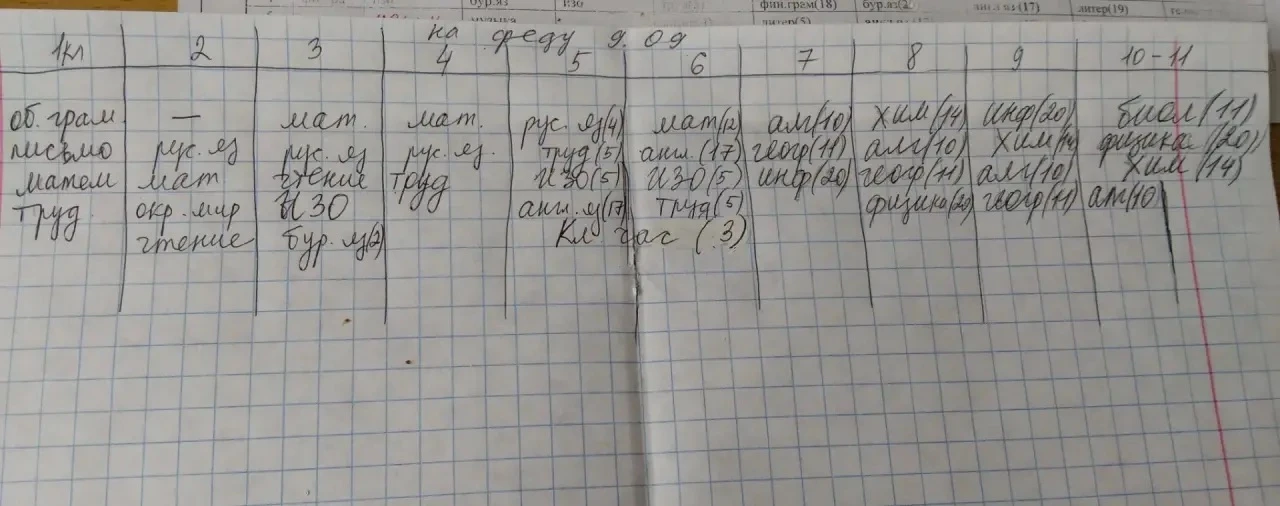 бур.яз ИЗО фин.грам(18) бур.яз(2) литер(19)
музыка литер(5)
на среду 9.09
1кл 2 3 4 5 6 7 8 9 10-11
об. грам — мат. мат. рус. яз(4) мат(12) алг(10) хим(14) инф(20) биол(11)
письмо рус. яз рус. яз рус. яз. труд(5) англ.(17) геогр(11) алг(10) хим(14) физика(20)
матем мат чтение труд ИЗО(5) ИЗО(5) инф(20) геогр(11) алг(10) хим(14)
труд окр. мир ИЗО англ. яз(17) труд(5) физика(20) геогр(11) алг(10)
чтение бур. яз(2) Кл час (3)